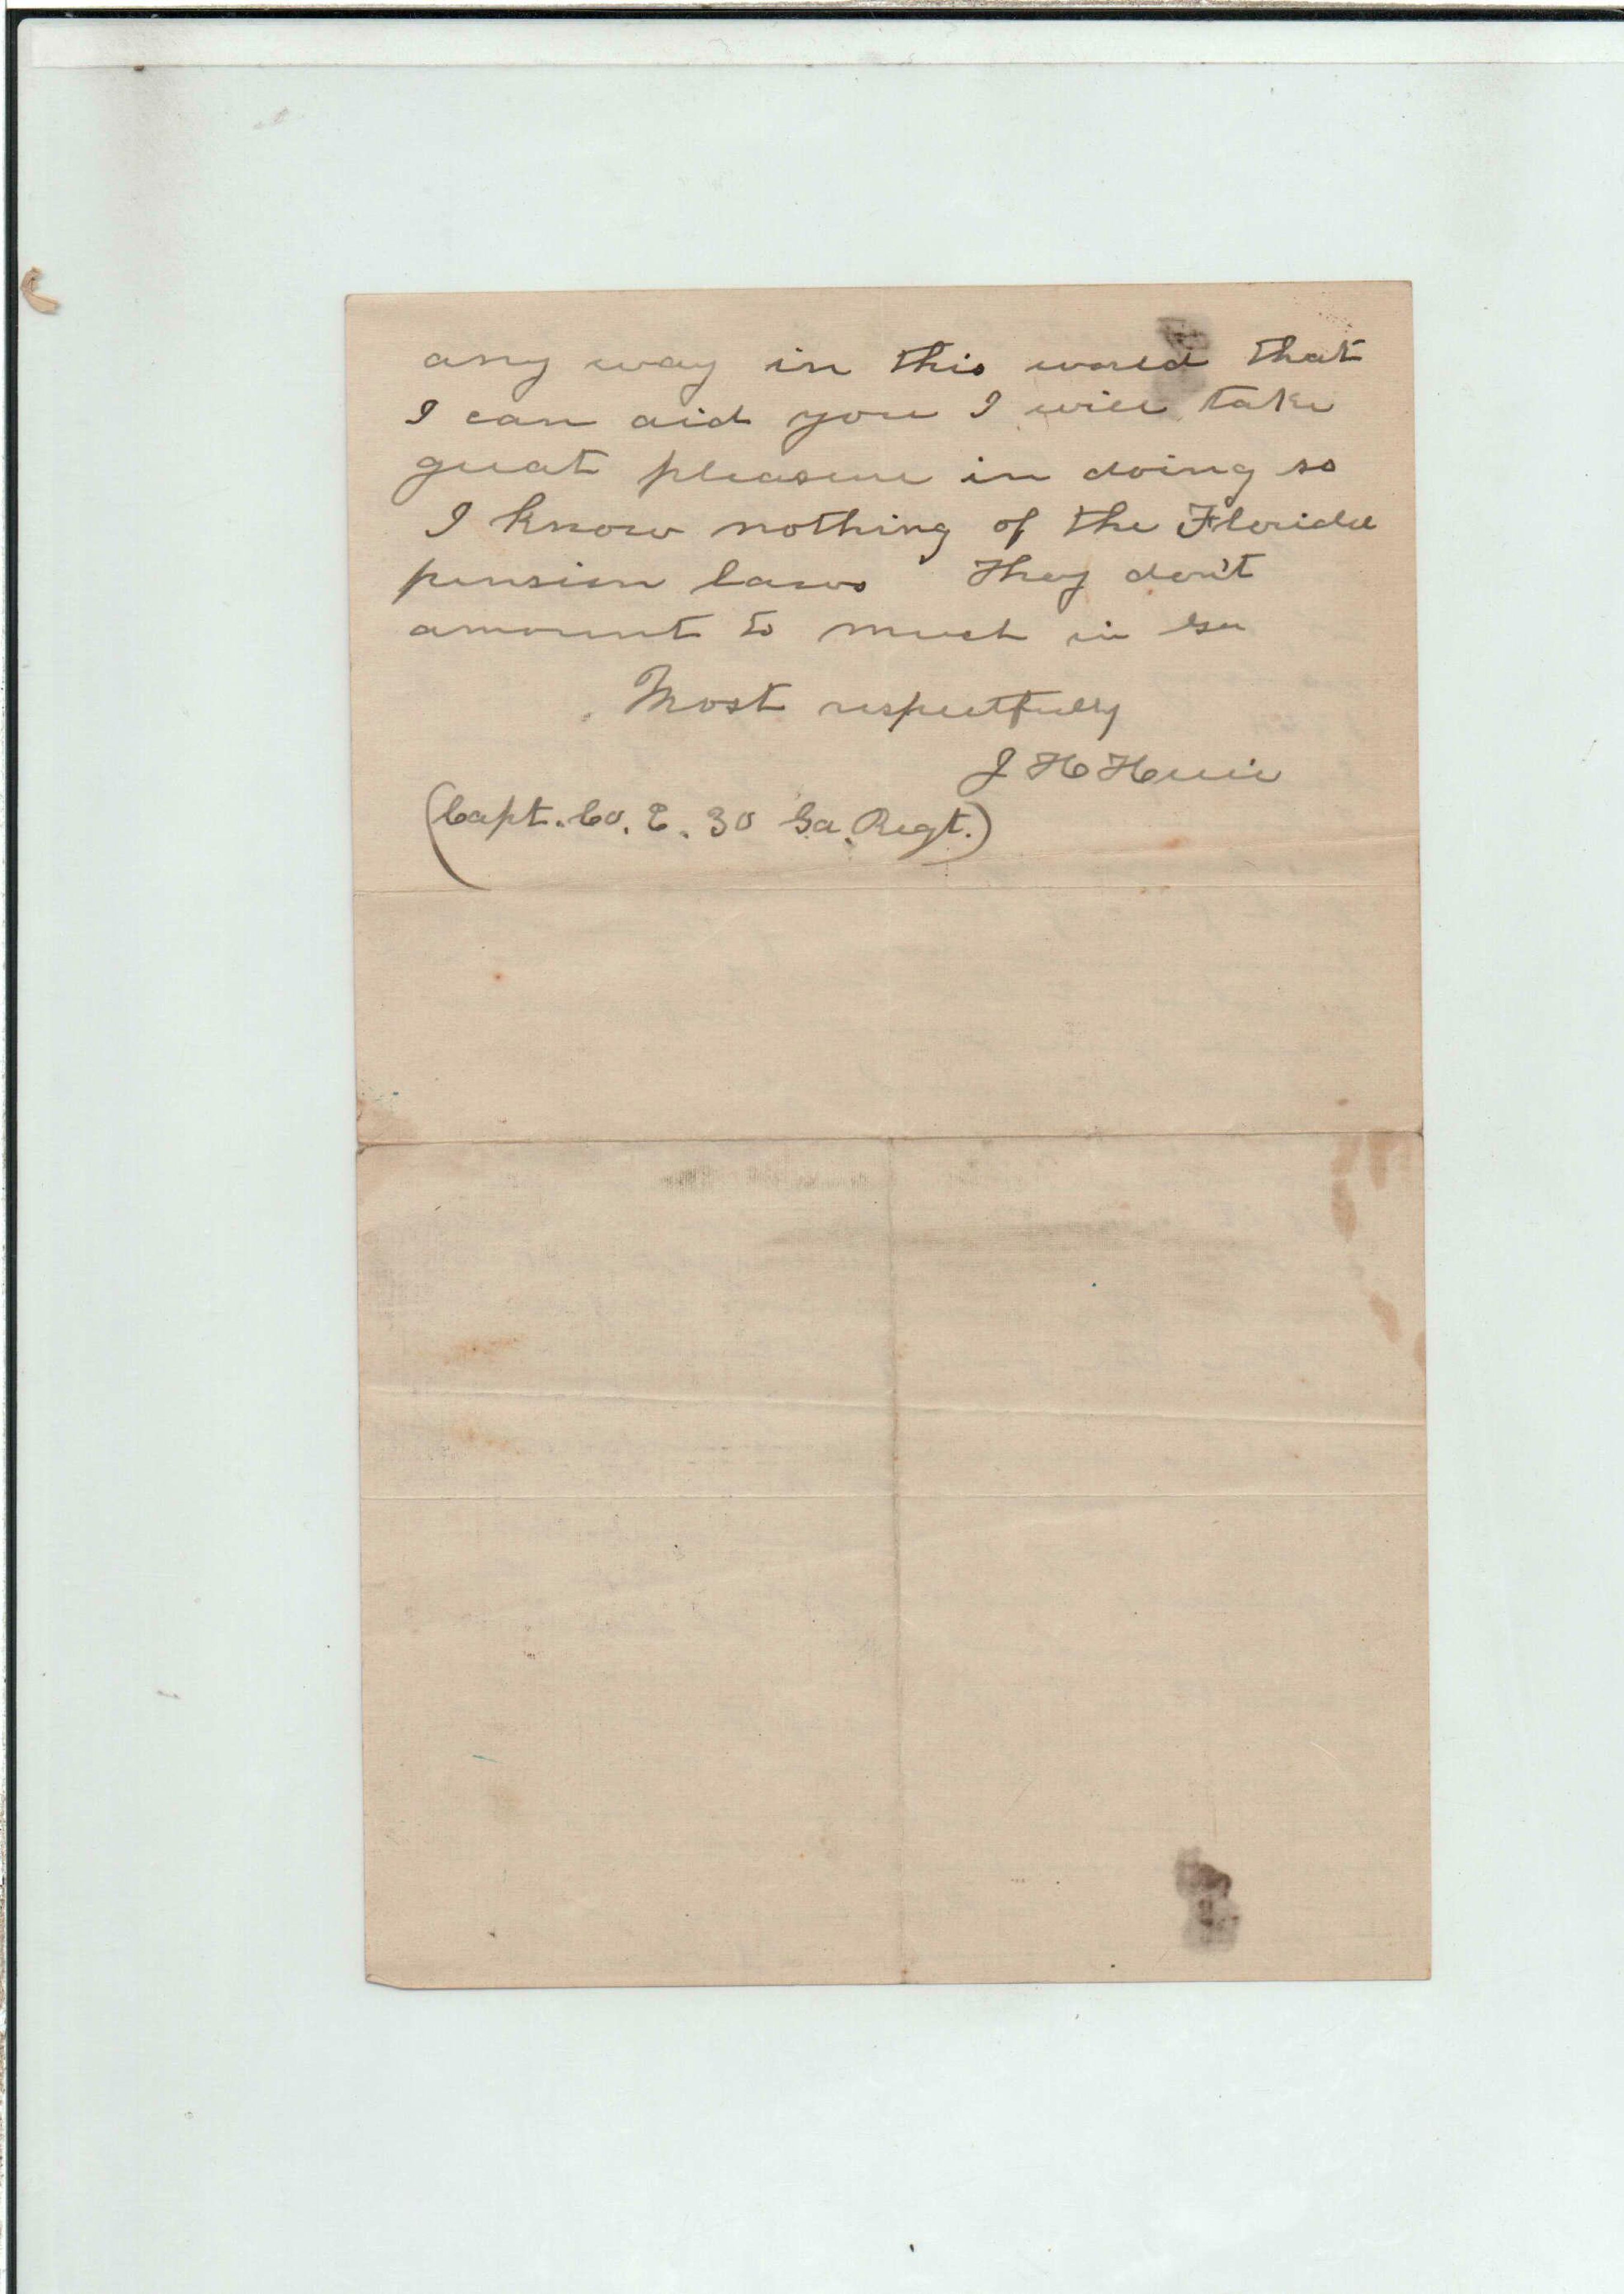 any way in this world that
I can aid you I will take
great pleasure in doing so
I know nothing of the Florida
pension laws They don't
amount to much in Ga
Most respectfully
J H Huie
(Capt. Co. E. 30 Ga. Regt.)